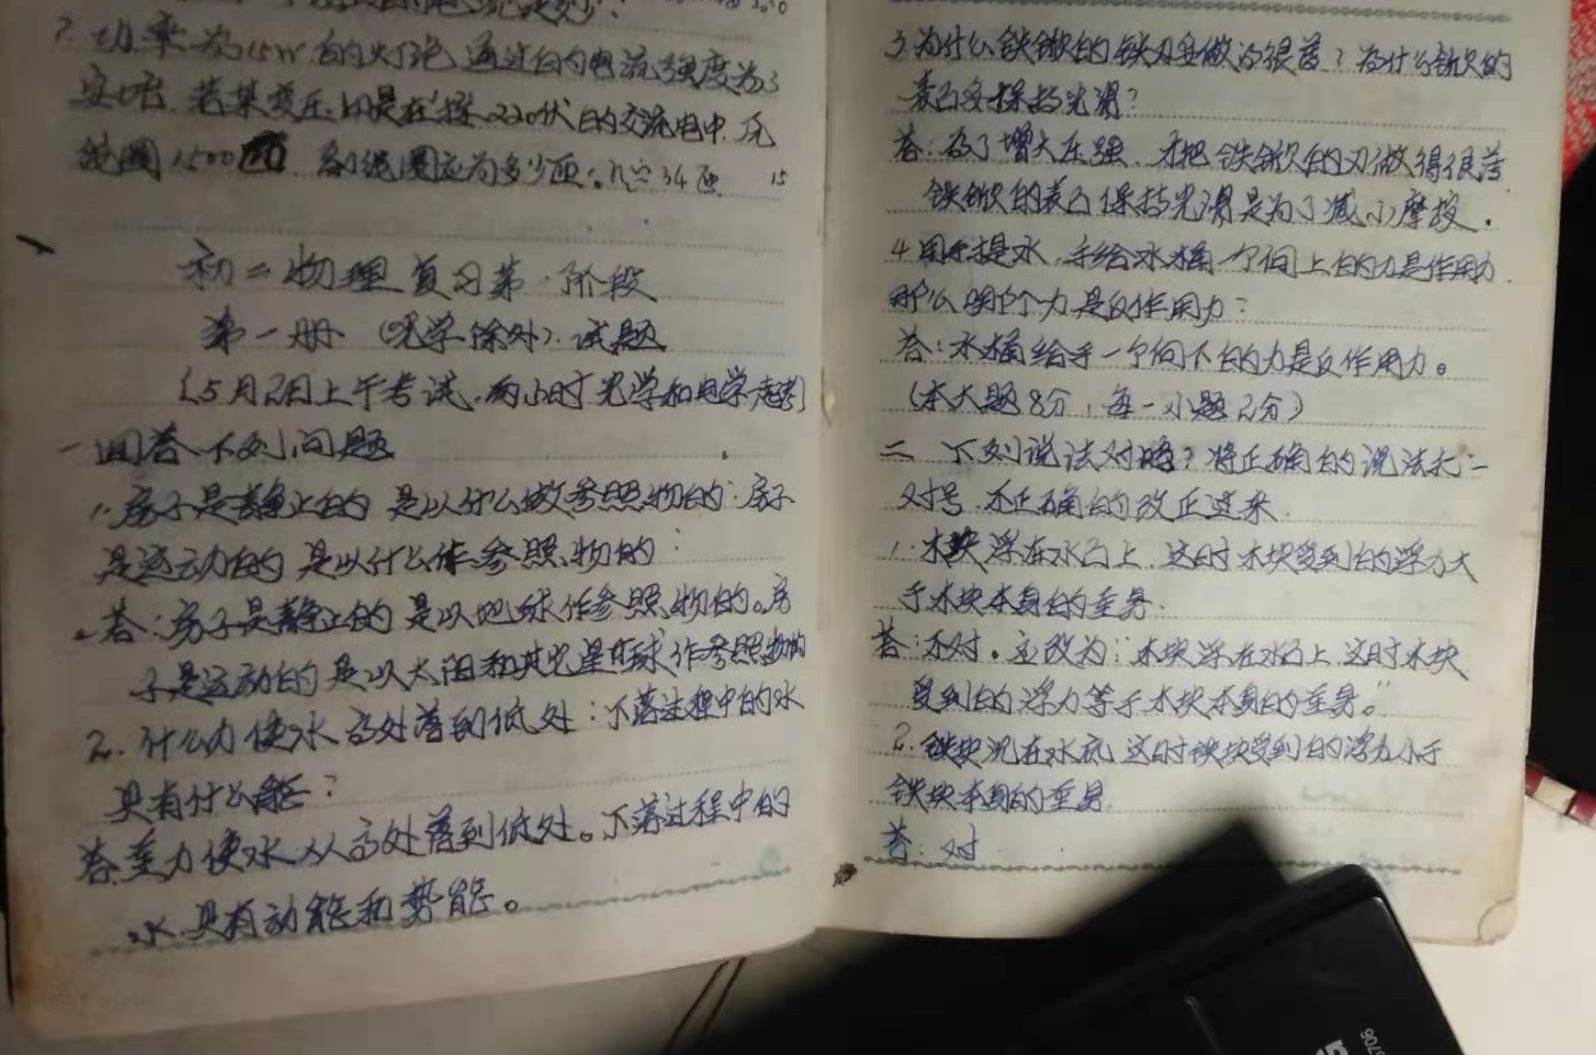 7. 功率为15W的灯泡 通过的电流强度为3
安培. 若某变压 是在接220伏的交流电中, 原
线圈1500 副线圈应为多少匝. n≈34匝 15
初二物理复习第一阶段
第一册 (光学除外) 试题
(5月2日上午考试, 两小时 光学和电学
一 回答下列问题
1. 房子是静止的 是以什么做参照物的: 房子
是运动的 是以什么作参照物的:
答: 房子是静止的 是以地球作参照物的。房
子是运动的是以太阳和其它星球作参照物的
2. 什么力使水高处落到低处: 下落过程中的水
具有什么能?
答. 重力使水从高处落到低处。下落过程中的
水具有动能和势能。
3. 为什么铁锨的铁刃要做的很薄? 为什么锨的
表面要保持光滑?
答: 为了增大压强 才把铁锨的刃做得很薄
铁锨的表面保持光滑是为了减小摩擦.
4. 用手提水, 手给水桶一个向上的力是作用力.
那么哪个力是反作用力:
答: 水桶给手一个向下的力是反作用力。
(本大题8分, 每一小题2分)
二 下列说法对吗? 将正确的说法打一
对号, 不正确的改正过来
1. 木块浮在水面上, 这时木块受到的浮力大
于木块本身的重量.
答: 不对。应改为: 木块浮在水面上 这时木块
受到的浮力等于木块本身的重量。"
2. 铁块沉在水底, 这时铁块受到的浮力小于
铁块本身的重量
答: 对